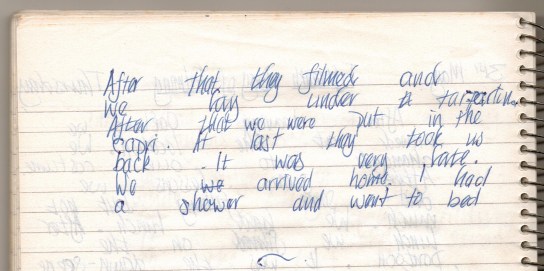 After that they filmed and
we lay under a tarpaulin.
After that we were put in the
capri. At last they took us
back. It was very late.
We we arrived home. I had
a shower and went to bed